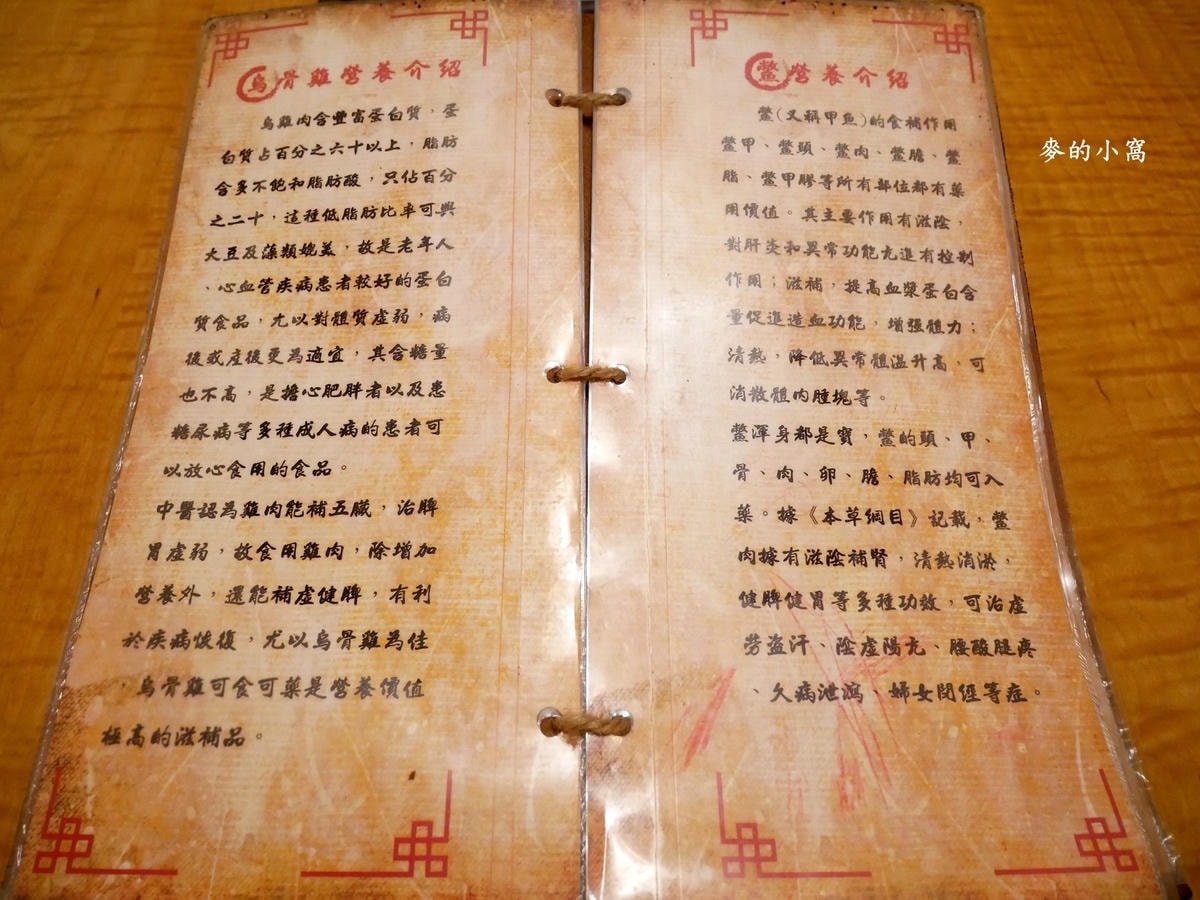 烏骨雞營養介紹
烏雞肉含豐富蛋白質,蛋
白質占百分之六十以上,脂肪
含多不飽和脂肪酸,只佔百分
之二十,這種低脂肪比率可與
大豆及藻類媲美,故是老年人
、心血管疾病患者較好的蛋白
質食品,尤以對體質虛弱,病
後或產後更為適宜,其含糖量
也不高,是擔心肥胖者以及患
糖尿病等多種成人病的患者可
以放心食用的食品。
中醫認為雞肉能補五臟,治脾
胃虛弱,故食用雞肉,除增加
營養外,還能補虛健脾,有利
於疾病恢復,尤以烏骨雞為佳
,烏骨雞可食可藥是營養價值
極高的滋補品。
鱉營養介紹
鱉(又稱甲魚)的食補作用
鱉甲、鱉頭、鱉肉、鱉膽、鱉
脂、鱉甲膠等所有部位都有藥
用價值。其主要作用有滋陰,
對肝炎和異常功能亢進有控制
作用;滋補,提高血漿蛋白含
量促進造血功能,增強體力;
清熱,降低異常體溫升高,可
消散體內腫塊等。
鱉渾身都是寶,鱉的頭、甲、
骨、肉、卵、膽、脂肪均可入
藥。據《本草綱目》記載,鱉
肉據有滋陰補腎,清熱消淤,
健脾健胃等多種功效,可治虛
勞盜汗、陰虛陽亢、腰酸腿疼
、久病泄瀉、婦女閉經等症。
麥的小窩